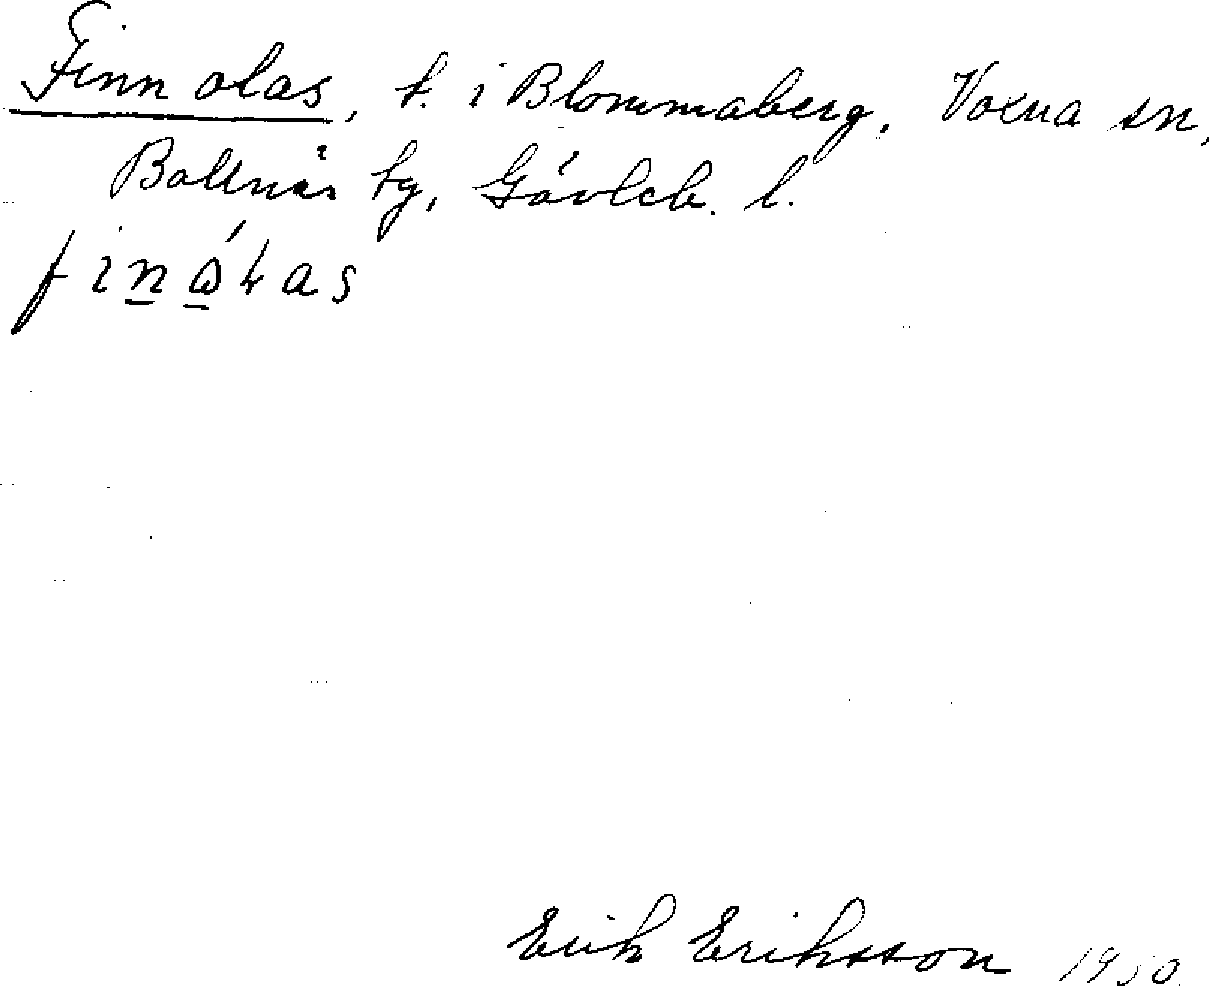 Finn olas, t. i Blommaberg, Voxna sn,
Bollnäs tg, Gävleb. l.
Erik Eriksson 1950.